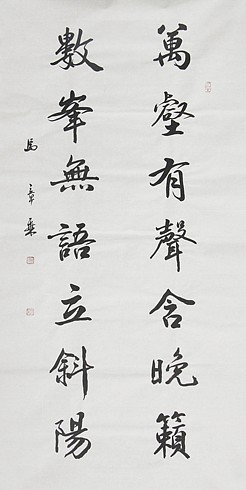 萬壑有聲含晚籟
數峯無語立斜陽
馬章乘